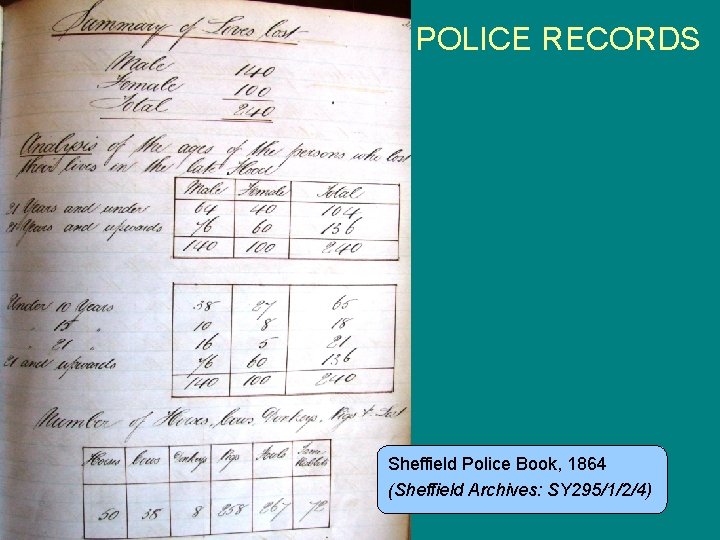 POLICE RECORDS
Summary of Lives lost
Male 140
Female 100
Total 240
Analysis of the ages of the persons who lost
their lives in the late Flood
Male Female Total
21 Years and under 64 40 104
21 Years and upwards 76 60 136
140 100 240
Under 10 Years 38 27 65
" 15 " 10 8 18
" 21 " 16 5 21
21 and upwards 76 60 136
140 100 240
Number of Horses, Cows, Donkeys, Pigs & Lost
Horses Cows Donkeys Pigs Fowls Tame Rabbits
50 38 8 258 267 72
Sheffield Police Book, 1864
(Sheffield Archives: SY295/1/2/4)